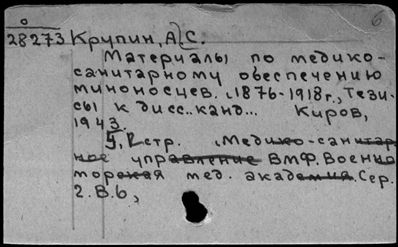 о
28273 Крупин, А. С.
6
Материалы по медико-
санитарному обеспечению
миноносцев. 1876-1918г., Тези-
сы к дисс.. канд... Киров,
1943.
стр. Медико-санитар
ное управление ВМФ. Военно
морская мед. академия. Сер.
2. В. 6,